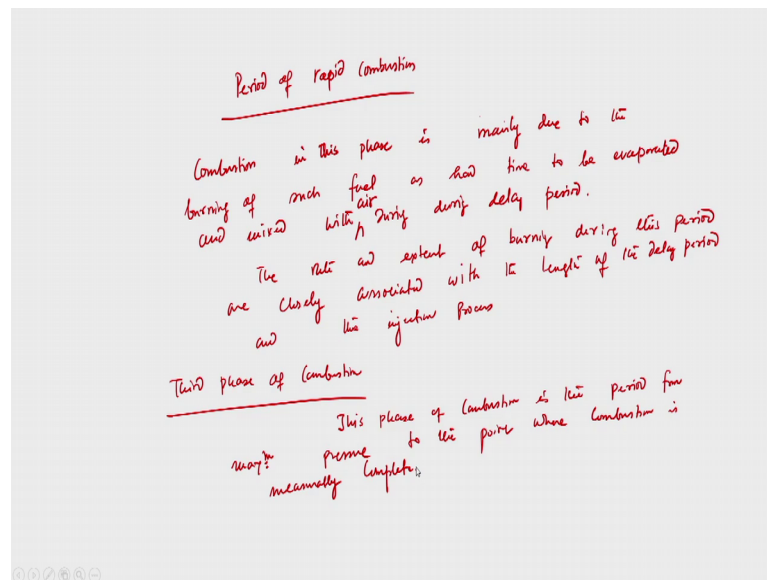 Period of rapid Combustion
Combustion in this phase is mainly due to the
burning of such fuel as had time to be evaporated
and mixed with air during during delay period.
The rate and extent of burning during this period
are closely associated with the length of the delay period
and the injection Process
Third phase of Combustion
This phase of Combustion is the period from
maxm. pressure to the point where Combustion is
measurably Complete